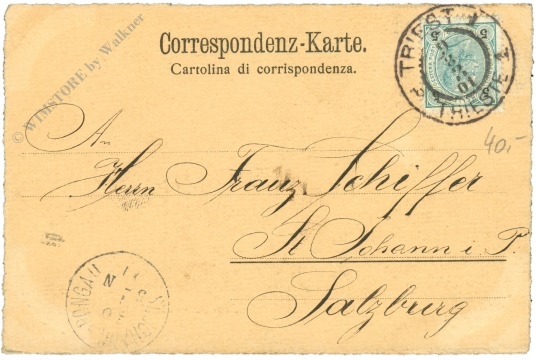 © WIMSTORE by Walkner
Correspondenz-Karte.
Cartolina di corrispondenza.
TRIEST 1
TRIESTE
5 5
01
40.-
An
Herrn Franz Schiffer
St Johann i. P.
Salzburg
PONGAU